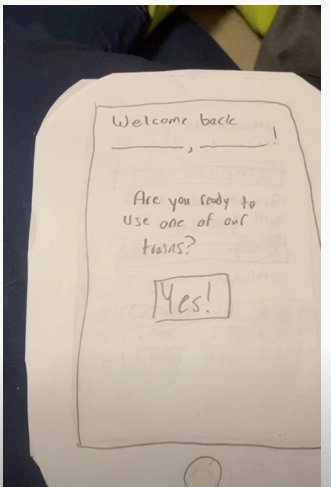 Welcome back
________, ________!
Are you ready to
use one of our
trains?
Yes!